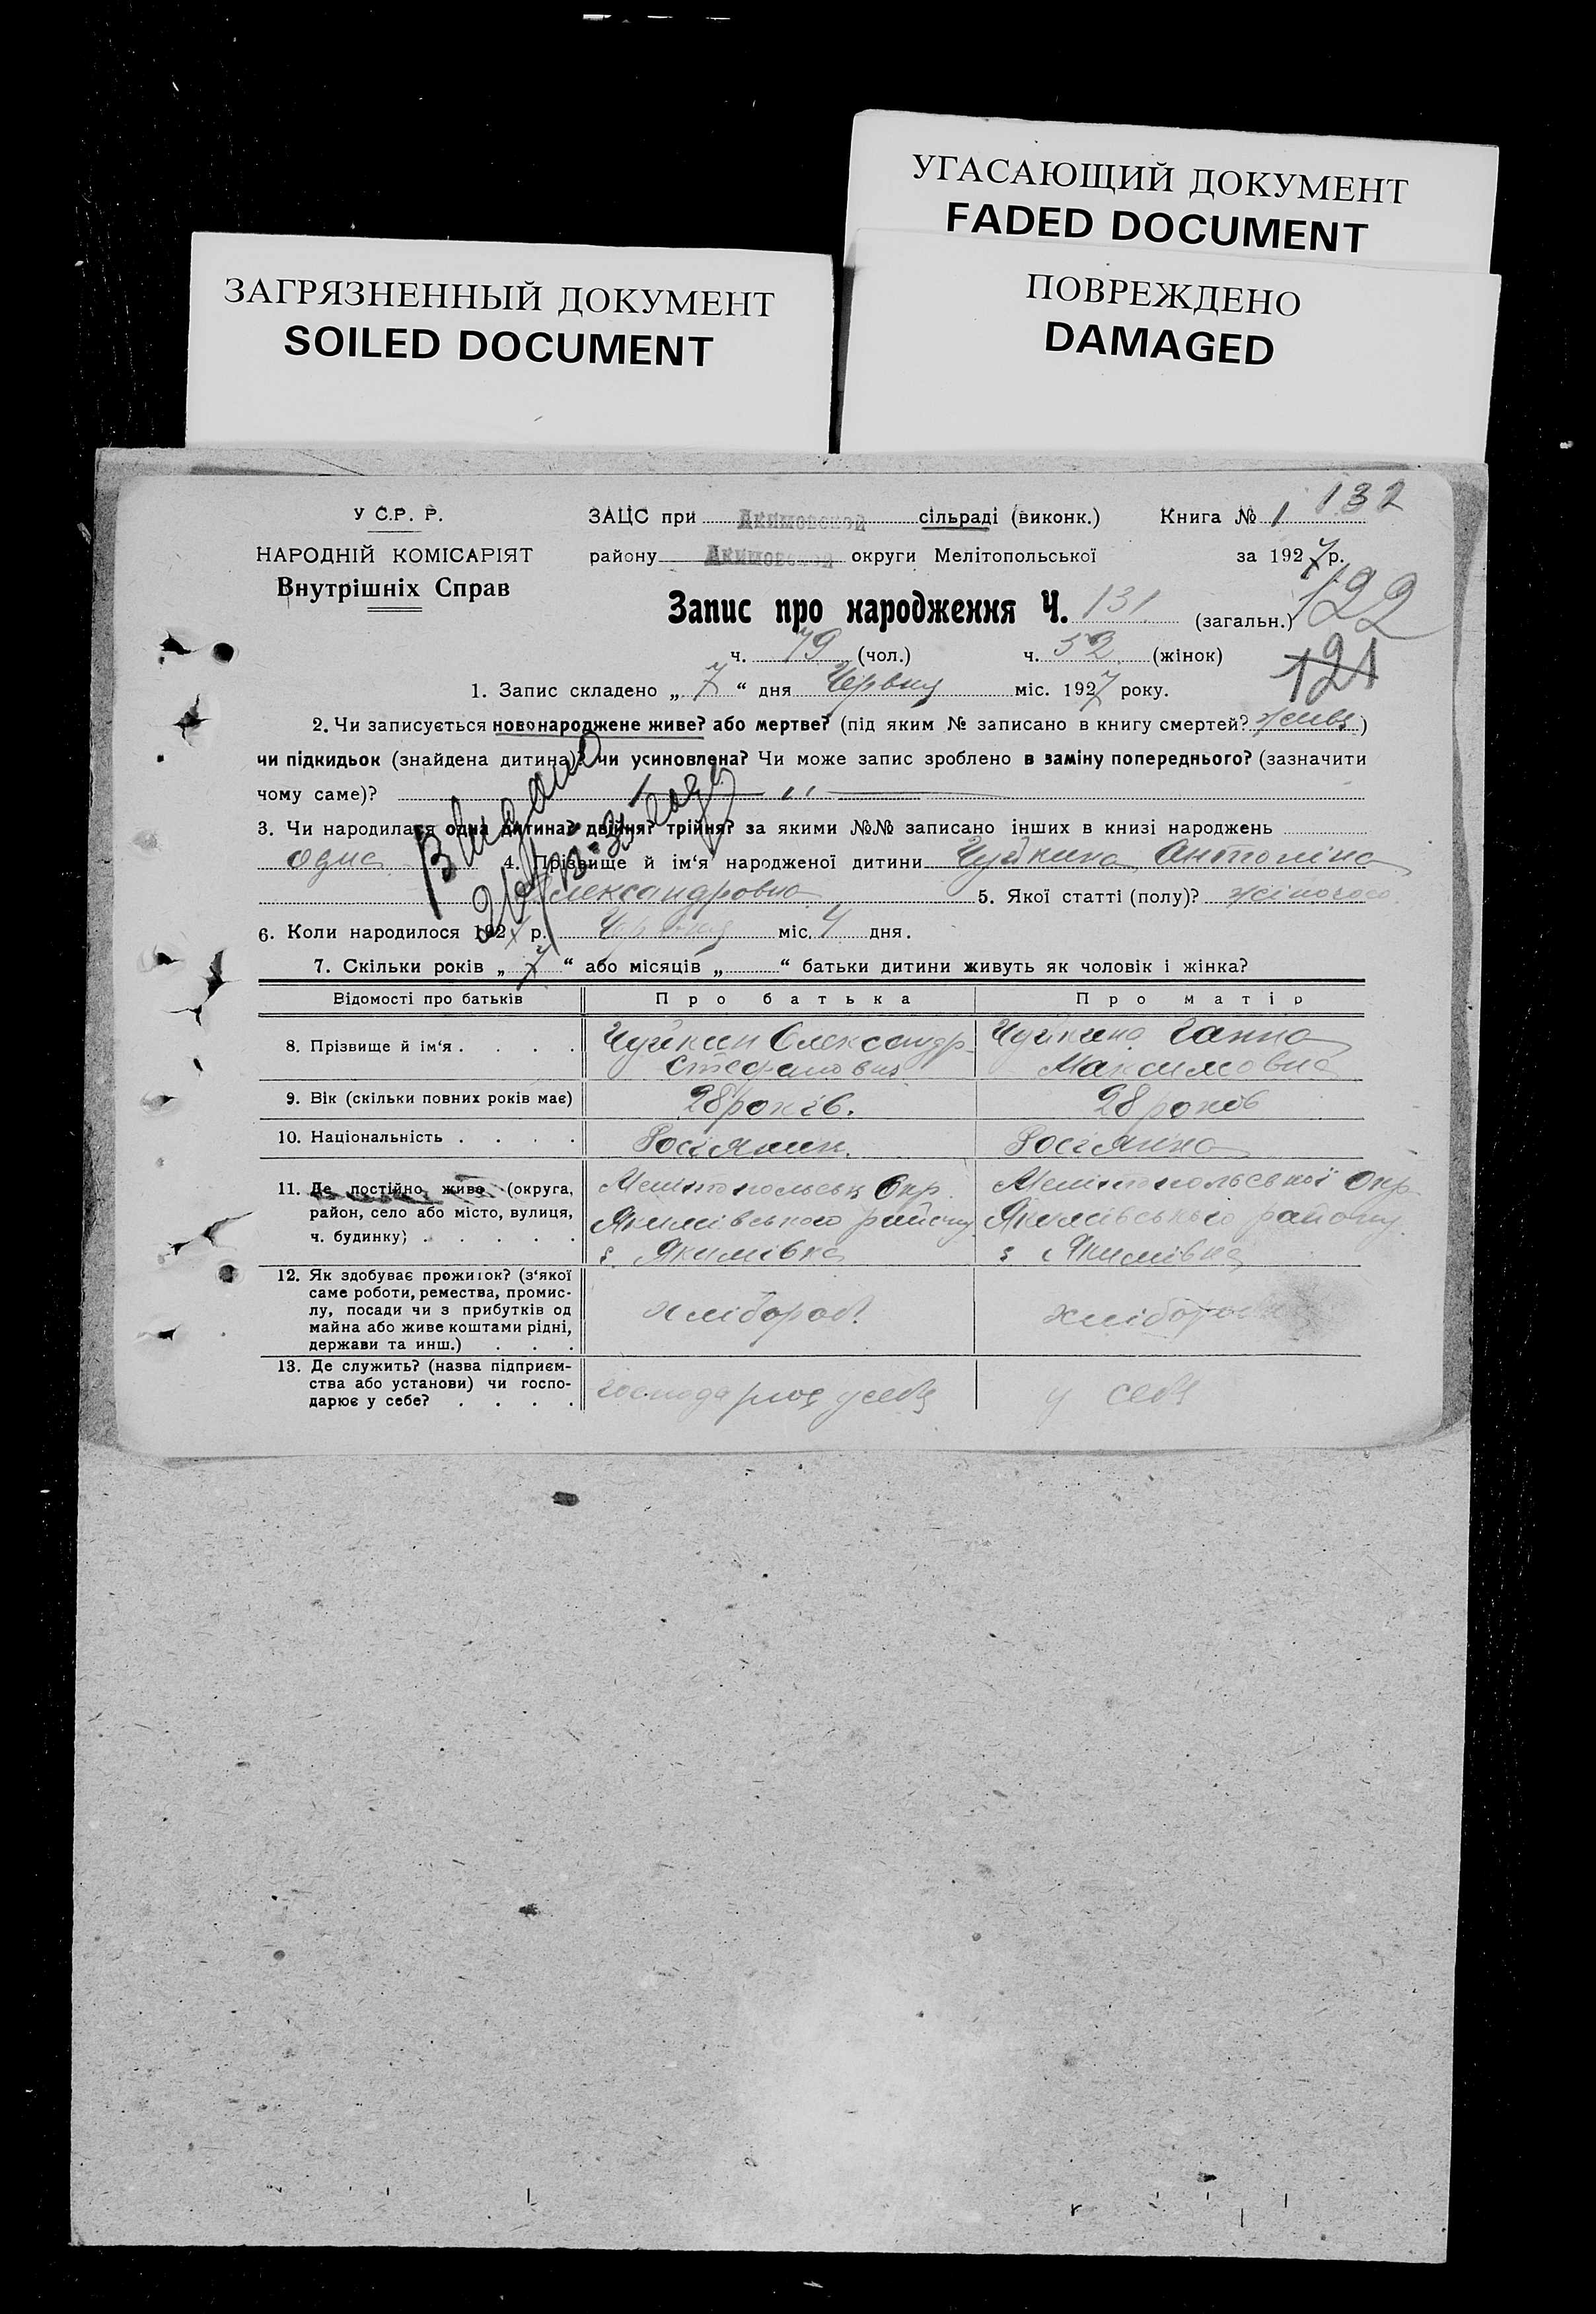 УГАСАЮЩИЙ ДОКУМЕНТ
FADED DOCUMENT
ЗАГРЯЗНЕННЫЙ ДОКУМЕНТ
SOILED DOCUMENT
ПОВРЕЖДЕНО
DAMAGED
132
У С.Р. Р.
ЗАЦС при Акимовской сільраді (виконк.) Книга № 1
НАРОДНІЙ КОМІСАРІЯТ
району Акимовской округи Мелітопольської за 1927 р.
Внутрішніх Справ
Запис про народження Ч. 131 (загальн.) 122
ч. 79 (чол.) ч. 52 (жінок)
121
1. Запис складено „ 7 “ дня Червня міс. 1927 року.
2. Чи записується новонароджене живе? або мертве? (під яким № записано в книгу смертей? живе)
чи підкидьок (знайдена дитина)? чи усиновлена? Чи може запис зроблено в заміну попереднього? (зазначити
чому саме)?
3. Чи народилася одна дитина? двійня? трійня? за якими №№ записано інших в книзі народжень
одна 4. Прізвище й ім‘я народженої дитини Чуйкина Антоніна
Олександровна 5. Якої статті (полу)? жіночого
6. Коли народилося 1927 р. Червня міс. 4 дня.
7. Скільки років „ 7 “ або місяців „ “ батьки дитини живуть як чоловік і жінка?
Видано
Відомості про батьків Про батька Про матір
8. Прізвище й ім‘я . . . . Чуйкин Олександр Чуйкина Ганна
Стефанович Максимовна
9. Вік (скільки повних років має) 28 років. 28 років
10. Національність . . . . Росіянин. Росіянка
11. Де постійно живе (округа, Мелітопольськ Окр. Мелітопольської Окр.
район, село або місто, вулиця, Якимівського району Якимівського району
ч. будинку) . . . . . с. Якимівка с. Якимівка
12. Як здобуває прожиток? (з‘якої
саме роботи, ремества, промис-
лу, посади чи з прибутків од хлібороб. хлібороб
майна або живе коштами рідні,
держави та инш.) . . .
13. Де служить? (назва підприєм-
ства або установи) чи госпо- господарює у себе у себе
дарює у себе? . . . .